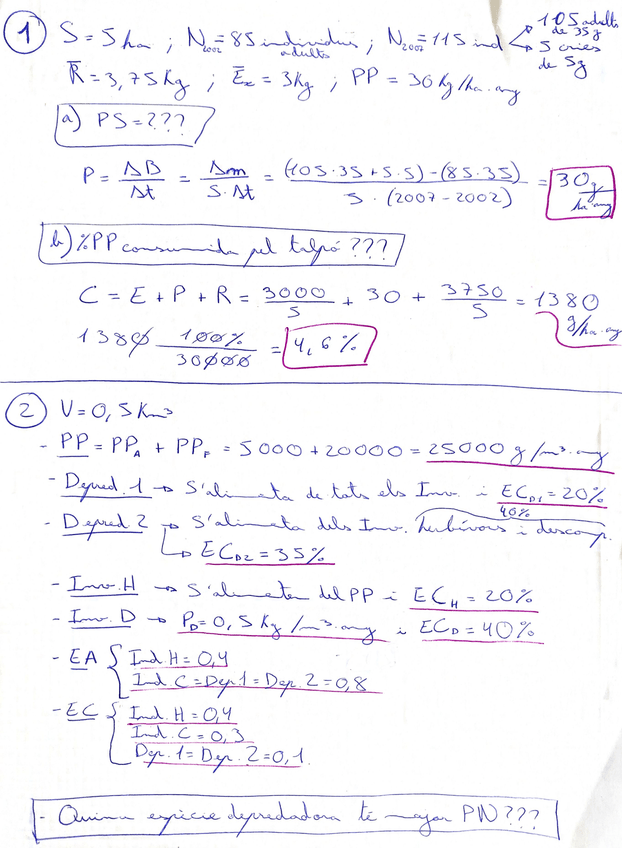 1 S = 5 ha ; N2002 = 85 individus adults ; N2007 = 115 ind → 105 adults de 35g
→ 5 cries de 5g
R̄ = 3,75 Kg ; Ēx = 3 Kg ; PP = 30 Kg/ha·any
a) PS = ???
P = ΔB/Δt = Δm/(S·Δt) = ((105·35 + 5·5) - (85·35))/(5·(2007-2002)) = 30 g/ha·any
b) %PP consumida pel talpó ???
C = E + P + R = 3000/5 + 30 + 3750/5 = 1380 g/ha·any
1380 100%/30000 = 4,6%
2 V = 0,5 Km³
- PP = PPA + PPF = 5000 + 20000 = 25000 g/m³·any
- Depred. 1 → S'alimenta de tots els Inv. i ECD1 = 20%
- Depred 2 → S'alimenta dels Inv. herbívors i descomp. 40%
↳ ECD2 = 35%
- Inv. H → S'alimenten del PP i ECH = 20%
- Inv. D → PD = 0,5 Kg/m³·any i ECD = 40%
- EA { Ind. H = 0,4
Ind. C = Dep. 1 = Dep. 2 = 0,8
- EC { Ind. H = 0,4
Ind. C = 0,3
Dep. 1 = Dep. 2 = 0,1.
- Quina espècie depredadora té major PN ???